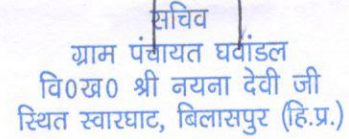 सचिव
ग्राम पंचायत घवांडल
वि०ख० श्री नयना देवी जी
स्थित स्वारघाट, बिलासपुर (हि.प्र.)